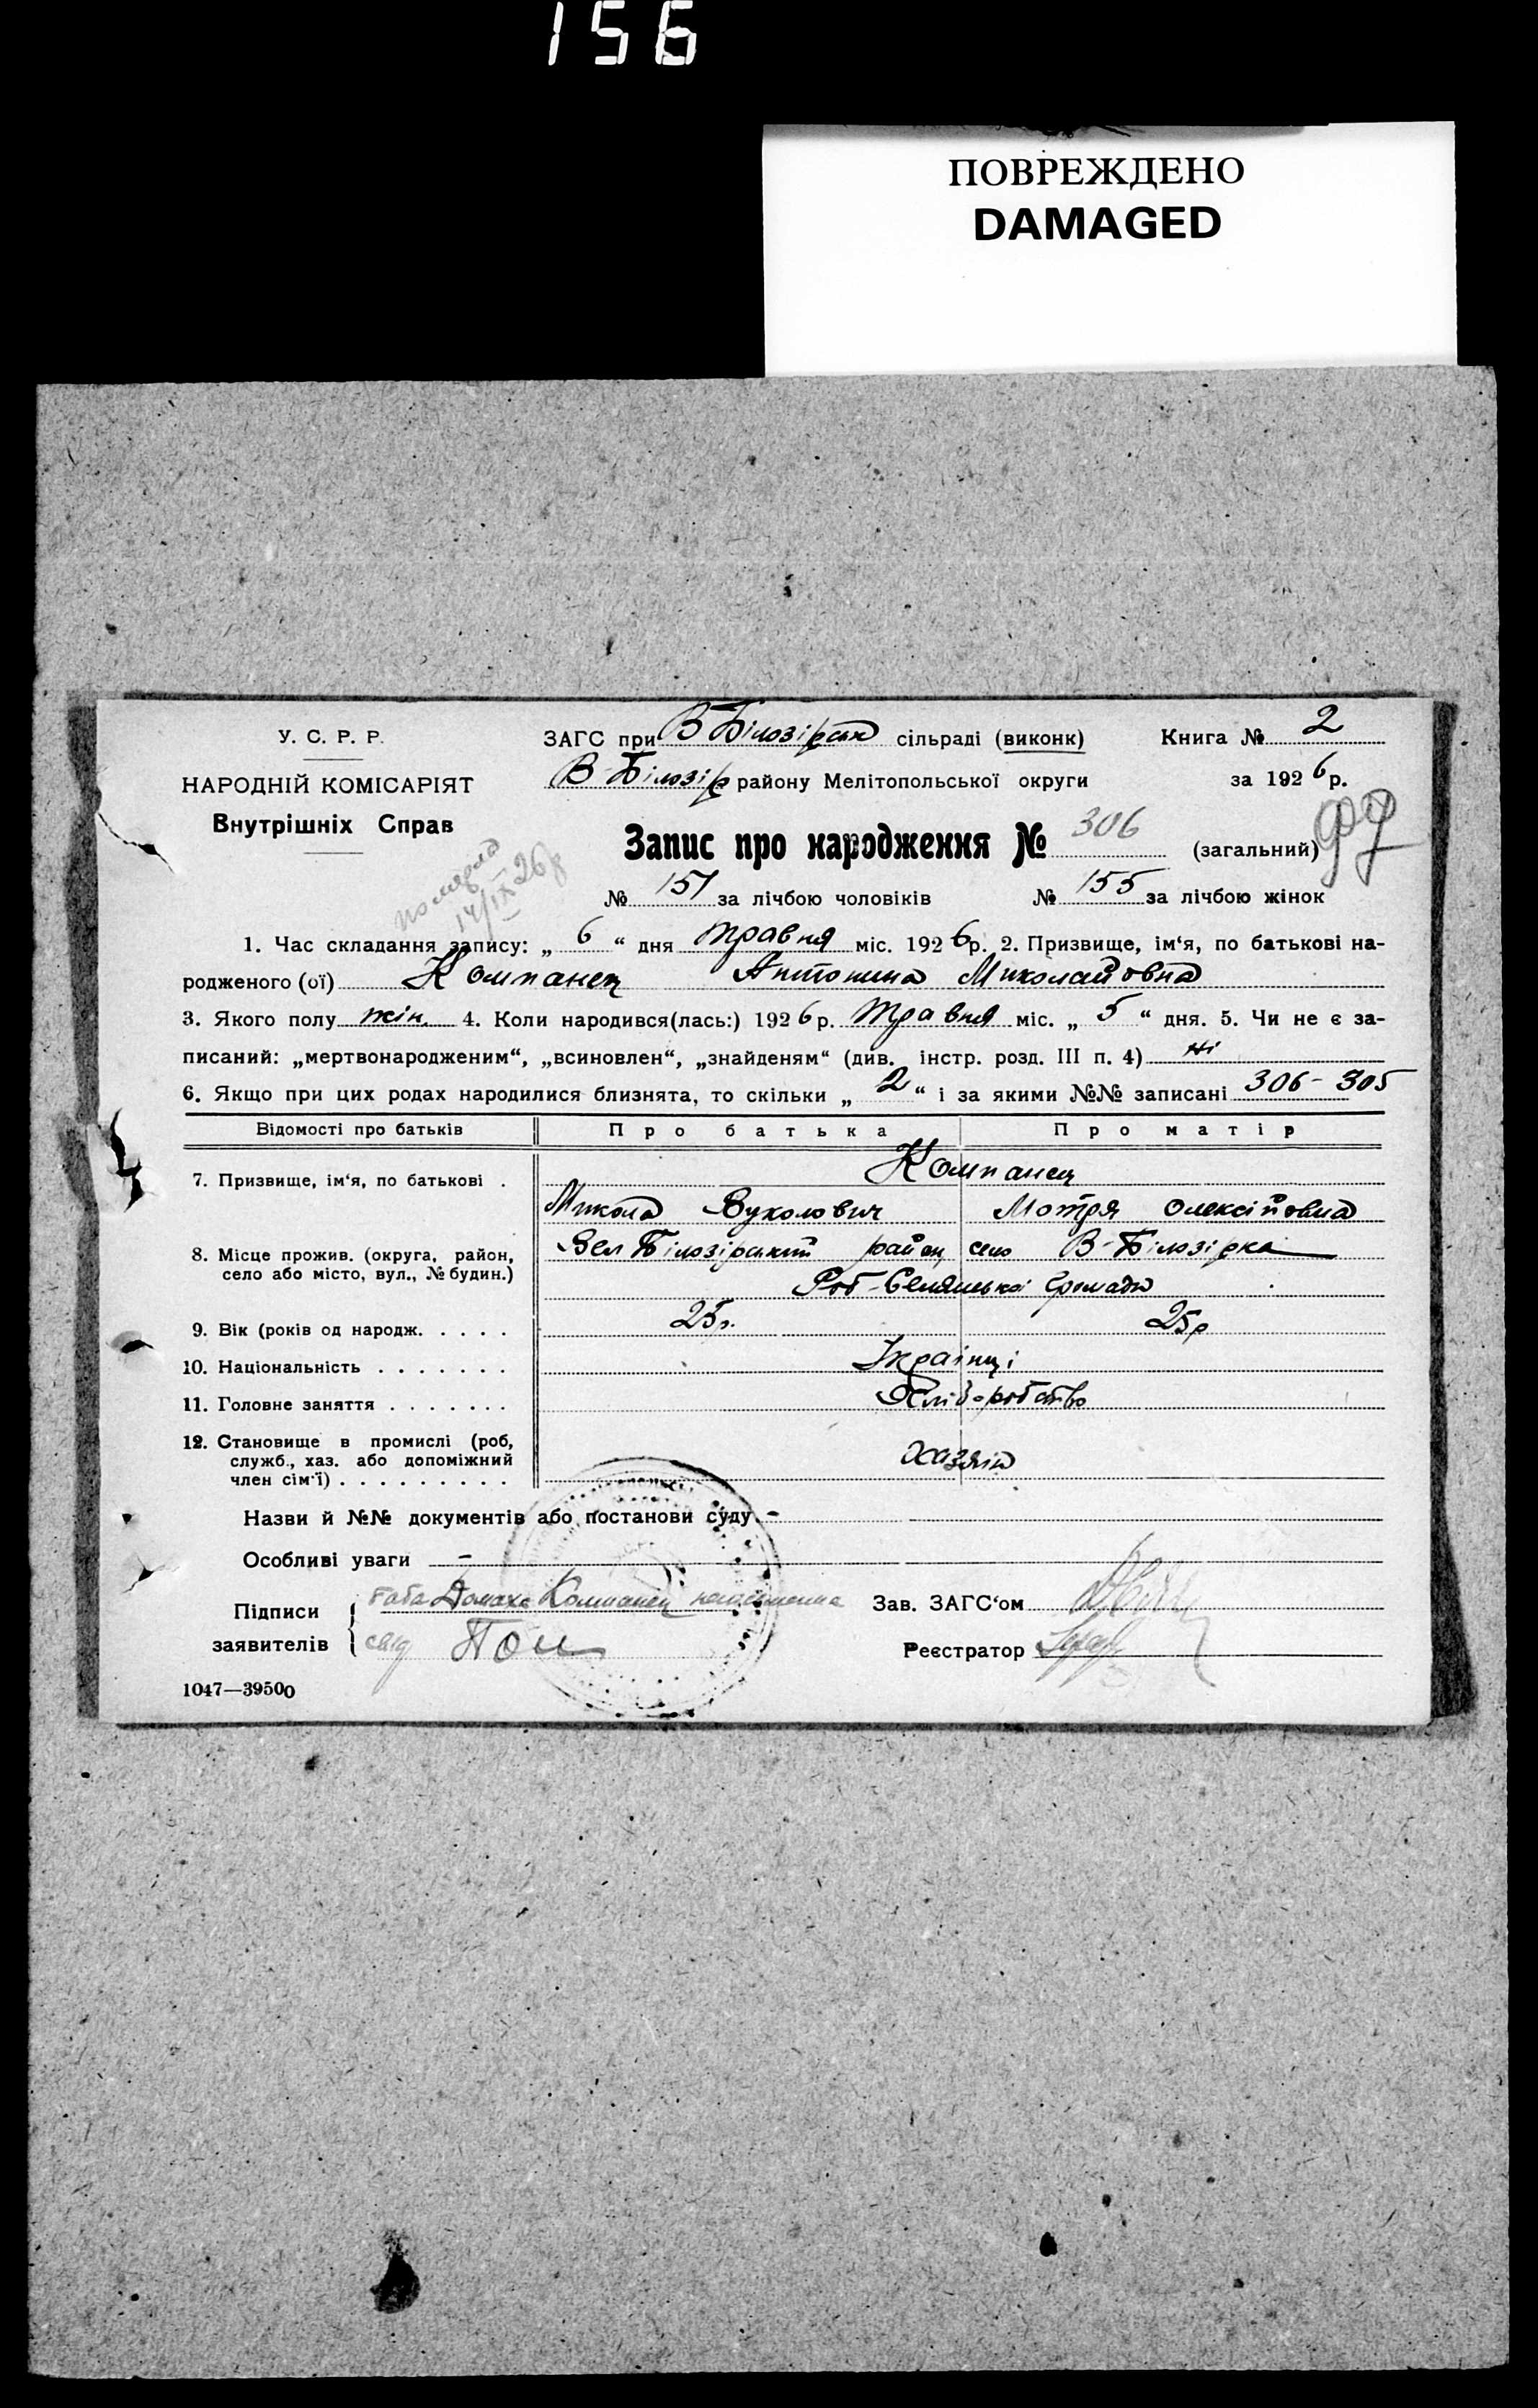 156
ПОВРЕЖДЕНО
DAMAGED
У. С. Р. Р.
НАРОДНІЙ КОМІСАРІЯТ
Внутрішніх Справ
ЗАГС при В Білозірськ сільраді (виконк)
Книга № 2
В-Білозір району Мелітопольської округи
за 1926 р.
99
Запис про народження № 306 (загальний)
№ 151 за лічбою чоловіків № 155 за лічбою жінок
померла
14/IX 26 р
1. Час складання запису: „ 6 “ дня травня міс. 1926 р. 2. Призвище, ім‘я, по батькові на-
родженого (ої) Компанец Антонина Миколайовна
3. Якого полу жін. 4. Коли народився(лась:) 1926 р. Травня міс. „ 5 “ дня. 5. Чи не є за-
писаний: „мертвонародженим“, „всиновлен“, „знайденям“ (див. інстр. розд. III п. 4) ні
6. Якщо при цих родах народилися близнята, то скільки „ 2 “ і за якими №№ записані 306-305
Відомості про батьків Про батька Про матір
7. Призвище, ім‘я, по батькові . Компанец
Микола Вуколович Мотря Олексійовна
8. Місце прожив. (округа, район, село або місто, вул., № будин.) Вел Білозірський район, село В-Білозірка
Роб-Селянської Громади
9. Вік (років од народж. . . . . 25р. 25р
10. Національність . . . . . . . Українці
11. Головне заняття . . . . . . . Хліборобство
12. Становище в промислі (роб, служб., хаз. або допоміжний член сім‘ї) . . . . . . . . . хазяїн
Назви й №№ документів або постанови суду -
Особливі уваги -
Підписи заявителів { баба Домаха Компанец неписьменна
свід
Зав. ЗАГС‘ом
Реєстратор
1047—39500